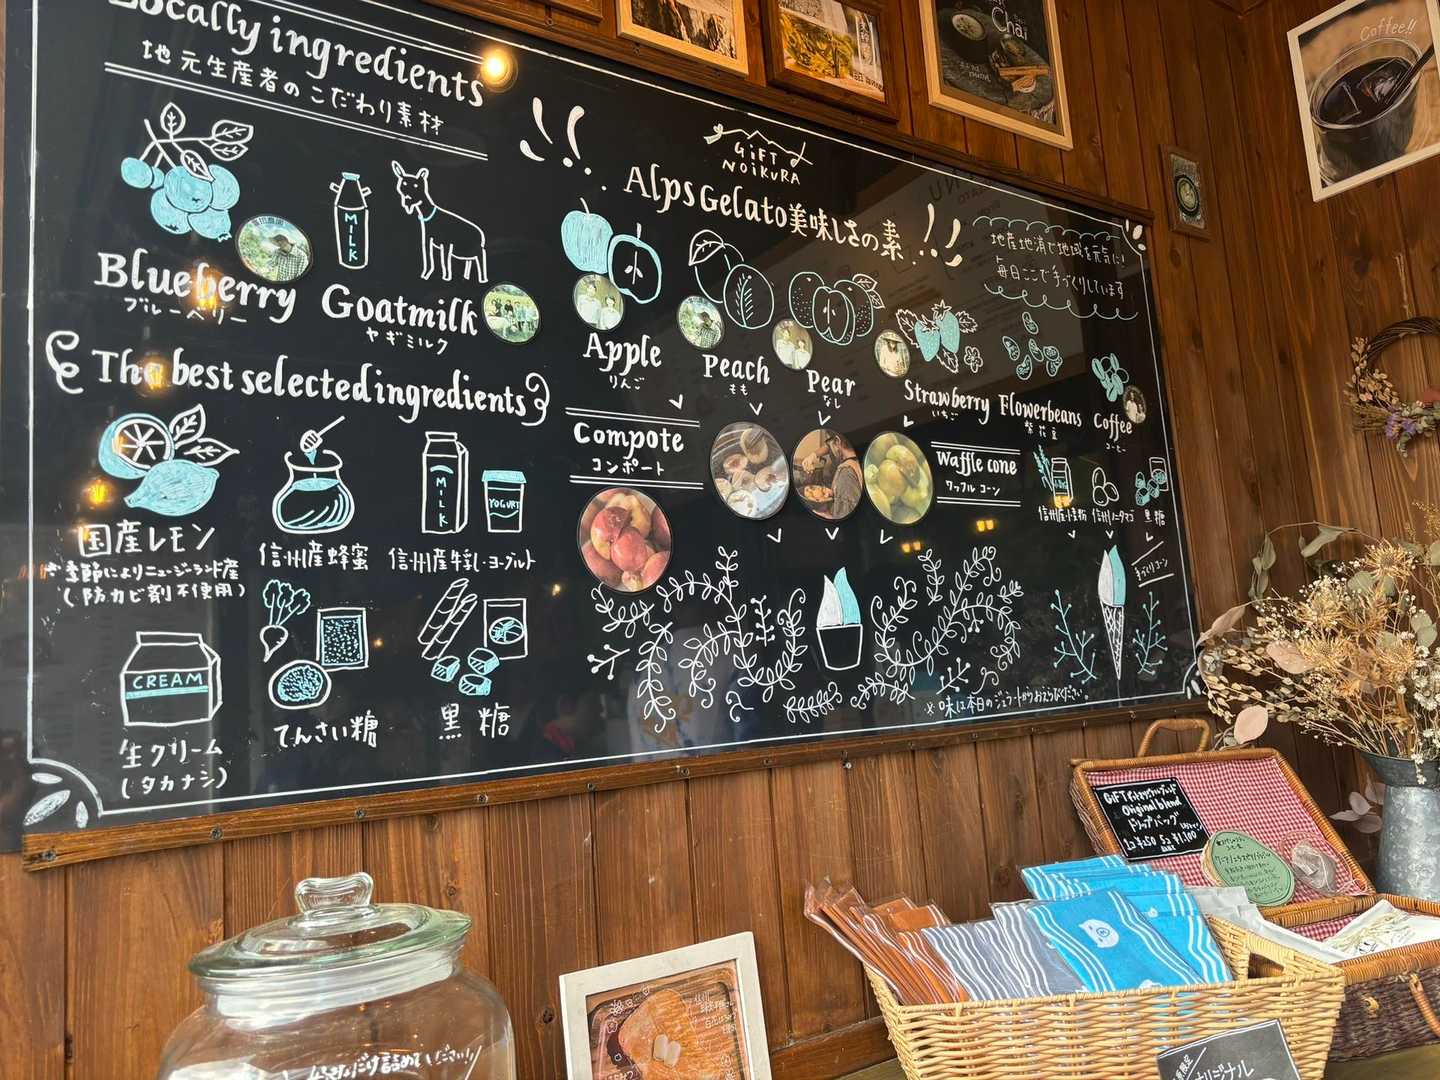 Locally ingredients
地元生産者のこだわり素材
MILK
Blueberry
ブルーベリー
Goatmilk
ヤギミルク
The best selected ingredients
国産レモン
※季節によりニュージーランド産
(防カビ剤不使用)
信州産蜂蜜
MILK
YOGURT
信州産牛乳・ヨーグルト
CREAM
生クリーム
(タカナシ)
てんさい糖
黒糖
GiFT
NOiKURA
Alps Gelato 美味しさの素
地産地消で地域を元気に!
毎日ここで手づくりしています
Apple
りんご
Peach
もも
Pear
なし
Strawberry
いちご
Flowerbeans
紫花豆
Coffee
コーヒー
Compote
コンポート
Waffle cone
ワッフルコーン
信州産小麦粉
信州産タマゴ
黒糖
手づくりコーン
※味は本日のジェラートからおえらびください
Chai
Coffee!!
GiFTオリジナルブレンド
Original blend
ドリップバッグ
1コ ¥250 5コ ¥1,100
オリジナル